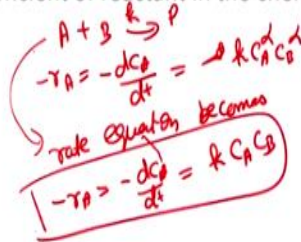 A + B →k P
-rA = -dCA/dt = k CA^α CB^α
rate equation becomes
-rA = -dCA/dt = k CA CB